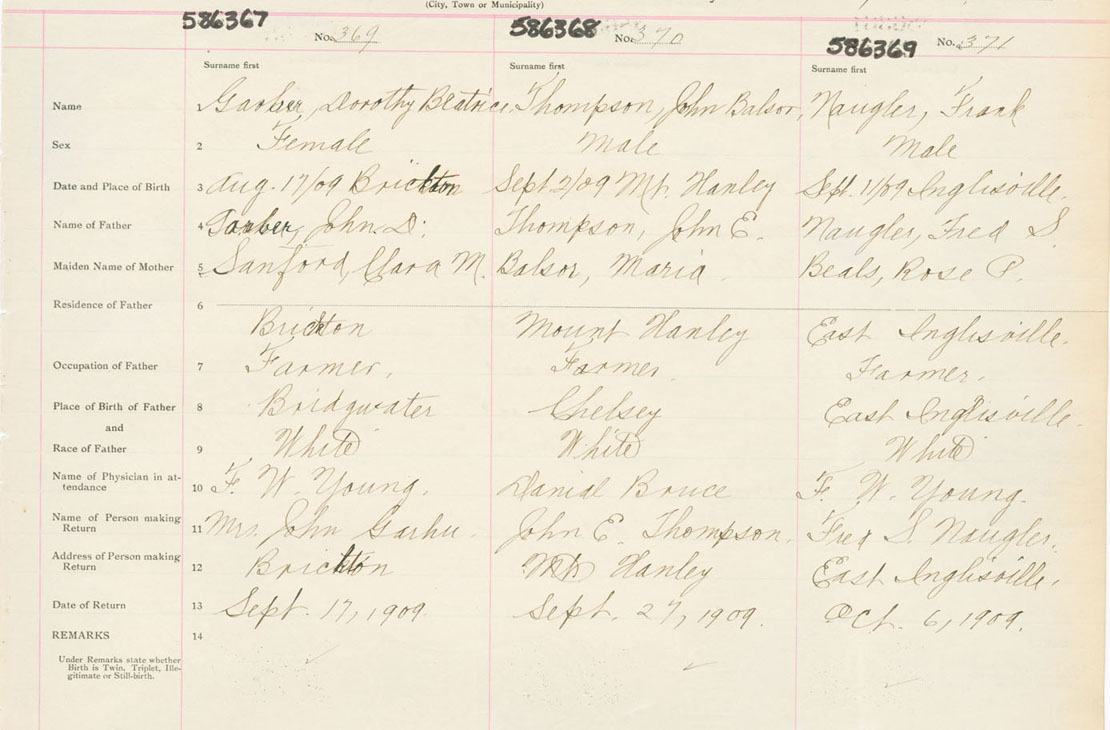 (City, Town or Municipality)
586367 No. 369 586368 No. 370 586369 No. 371
Surname first Surname first Surname first
Name Garber, Dorothy Beatrice Thompson, John Balsor, Naugler, Frank
Sex 2 Female Male Male
Date and Place of Birth 3 Aug. 17/09 Brickton Sept 2/09 Mt. Hanley Sept. 1/09 Inglisville.
Name of Father 4 Garber, John. D. Thompson, John E. Naugler, Fred S.
Maiden Name of Mother 5 Sanford, Clara M. Balsor, Maria. Beals, Rose P.
Residence of Father 6
Brickton Mount Hanley East Inglisville.
Occupation of Father 7 Farmer. Farmer. Farmer.
Place of Birth of Father 8 Bridgwater Chelsey East Inglisville.
and
Race of Father 9 White White White
Name of Physician in at-
tendance 10 F. W. Young. Danial Bruce F. W. Young.
Name of Person making
Return 11 Mrs. John John E. Thompson. Fred S. Naugler.
Address of Person making
Return 12 Brickton Mt. Hanley East Inglisville.
Date of Return 13 Sept. 17, 1909. Sept. 27, 1909. Oct. 6, 1909.
REMARKS 14
Under Remarks state whether
Birth is Twin, Triplet, Ille-
gitimate or Still-birth.